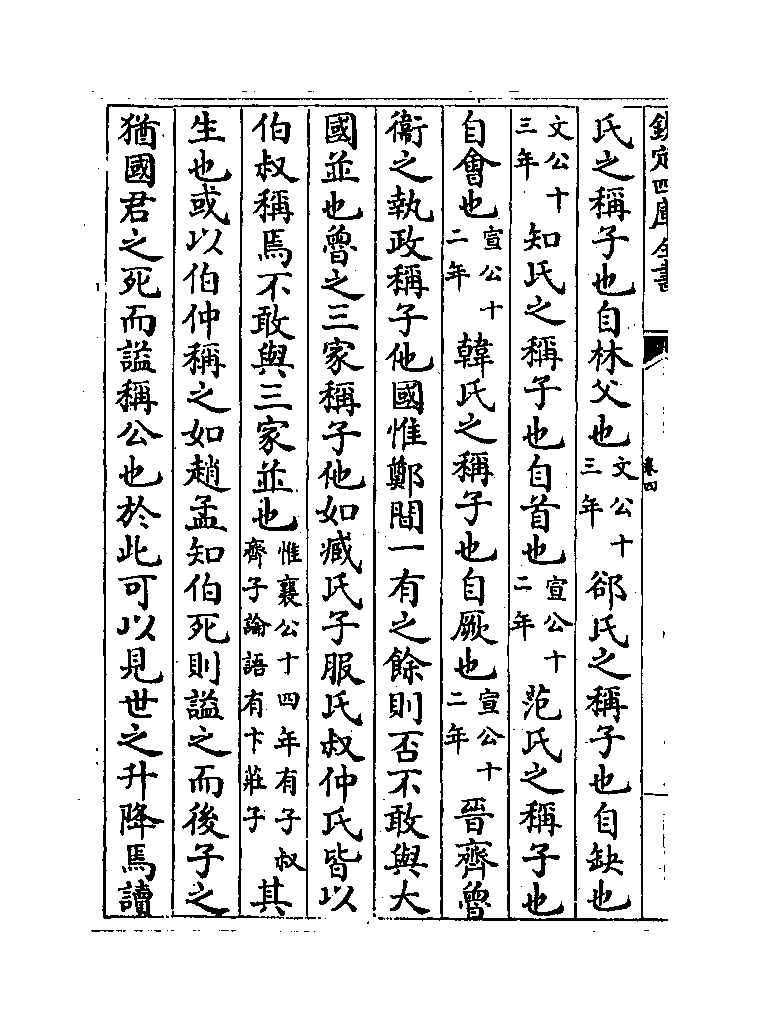 欽定四庫全書
卷四
氏之稱子也自林父也文公十三年郤氏之稱子也自缺也
文公十三年知氏之稱子也自首也宣公十二年范氏之稱子也
自會也宣公十二年韓氏之稱子也自厥也宣公十二年晉齊魯
衞之執政稱子他國惟鄭間一有之餘則否不敢與大
國並也魯之三家稱子他如臧氏子服氏叔仲氏皆以
伯叔稱焉不敢與三家並也惟襄公十四年有子叔齊子論語有卞莊子其
生也或以伯仲稱之如趙孟知伯死則謚之而後子之
猶國君之死而謚稱公也於此可以見世之升降焉讀